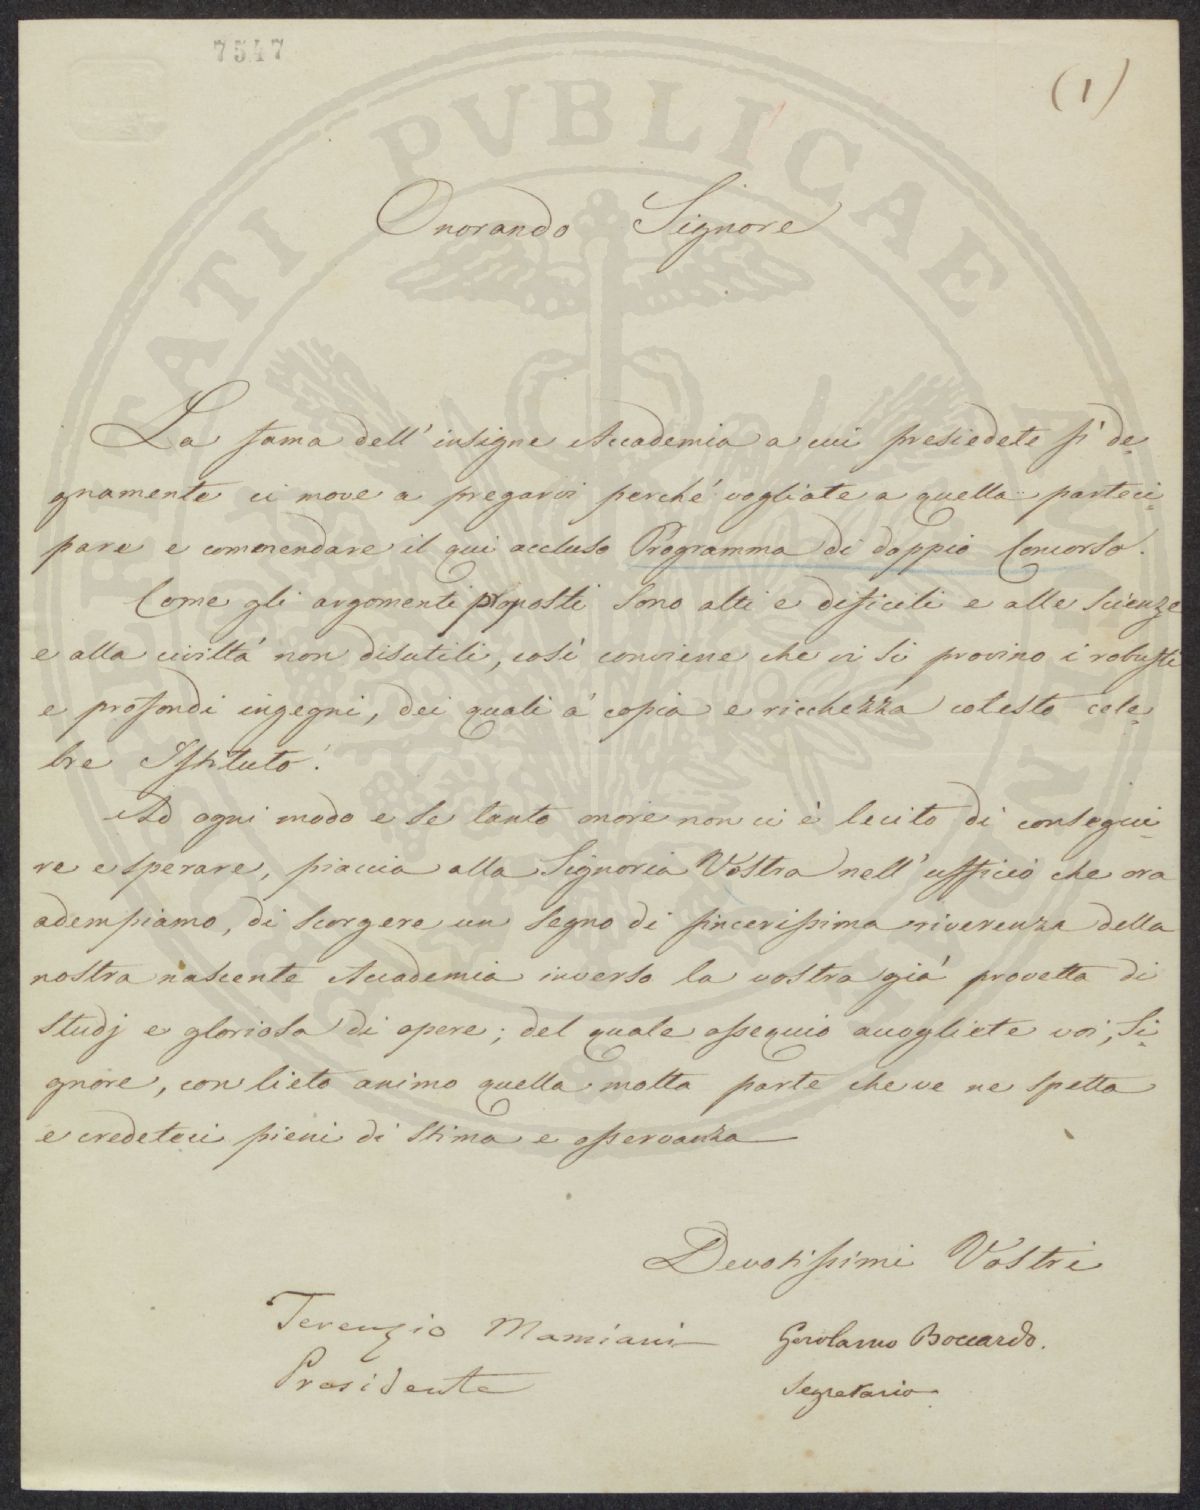 7547
(1)
PVBLICAE
Onorando Signore
La fama dell' insigne Accademia a cui presiedete sì de-
gnamente ci move a pregarvi perché vogliate a quella parteci-
pare e commendare il qui accluso Programma di doppio Concorso.
Come gli argomenti proposti sono alti e dificili e alle scienze
e alla civiltà non disutili, così conviene che vi si provino i robusti
e profondi ingegni, dei quali à copia e ricchezza cotesto cele-
bre Istituto.
Ad ogni modo e se tanto onore non ci è lecito di consegui-
re e sperare, piaccia alla Signoria Vostra nell' ufficio che ora
adempiamo, di scorgere un segno di sincerissima riverenza della
nostra nascente Accademia inverso la vostra già provetta di
studj e gloriosa di opere; del quale ossequio accogliete voi, Si-
gnore, con lieto animo quella molta parte che ve ne spetta
e credeteci pieni di stima e osservanza
Devotissimi Vostri
Terenzio Mamiani Gerolamo Boccardo.
Presidente Segretario